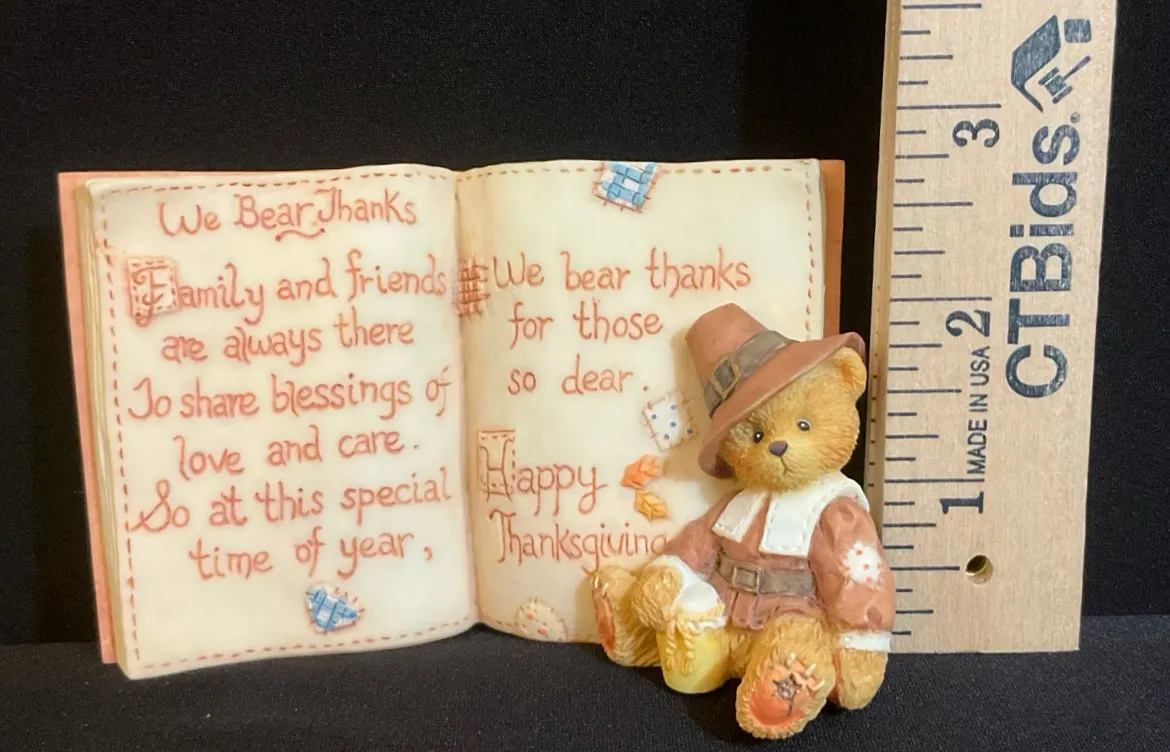 We Bear Thanks
Family and friends
are always there
To share blessings of
love and care.
So at this special
time of year,
We bear thanks
for those
so dear.
Happy
Thanksgiving
3
2
1
MADE IN USA
CTBids.